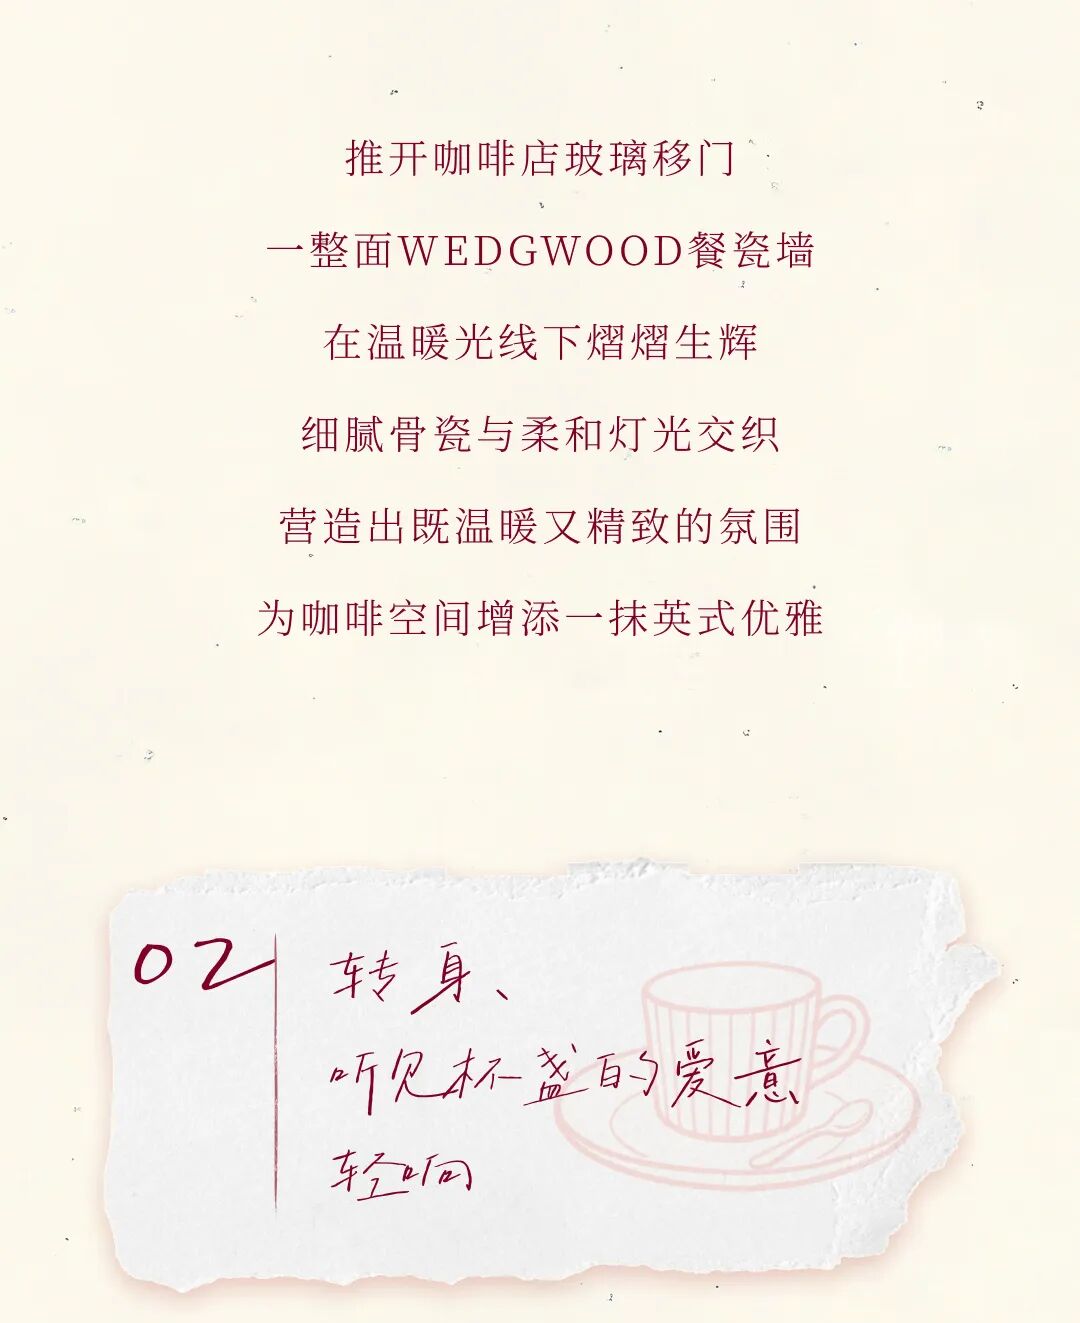 推开咖啡店玻璃移门
一整面WEDGWOOD餐瓷墙
在温暖光线下熠熠生辉
细腻骨瓷与柔和灯光交织
营造出既温暖又精致的氛围
为咖啡空间增添一抹英式优雅
02
转身、
听见杯盏的爱意
轻响